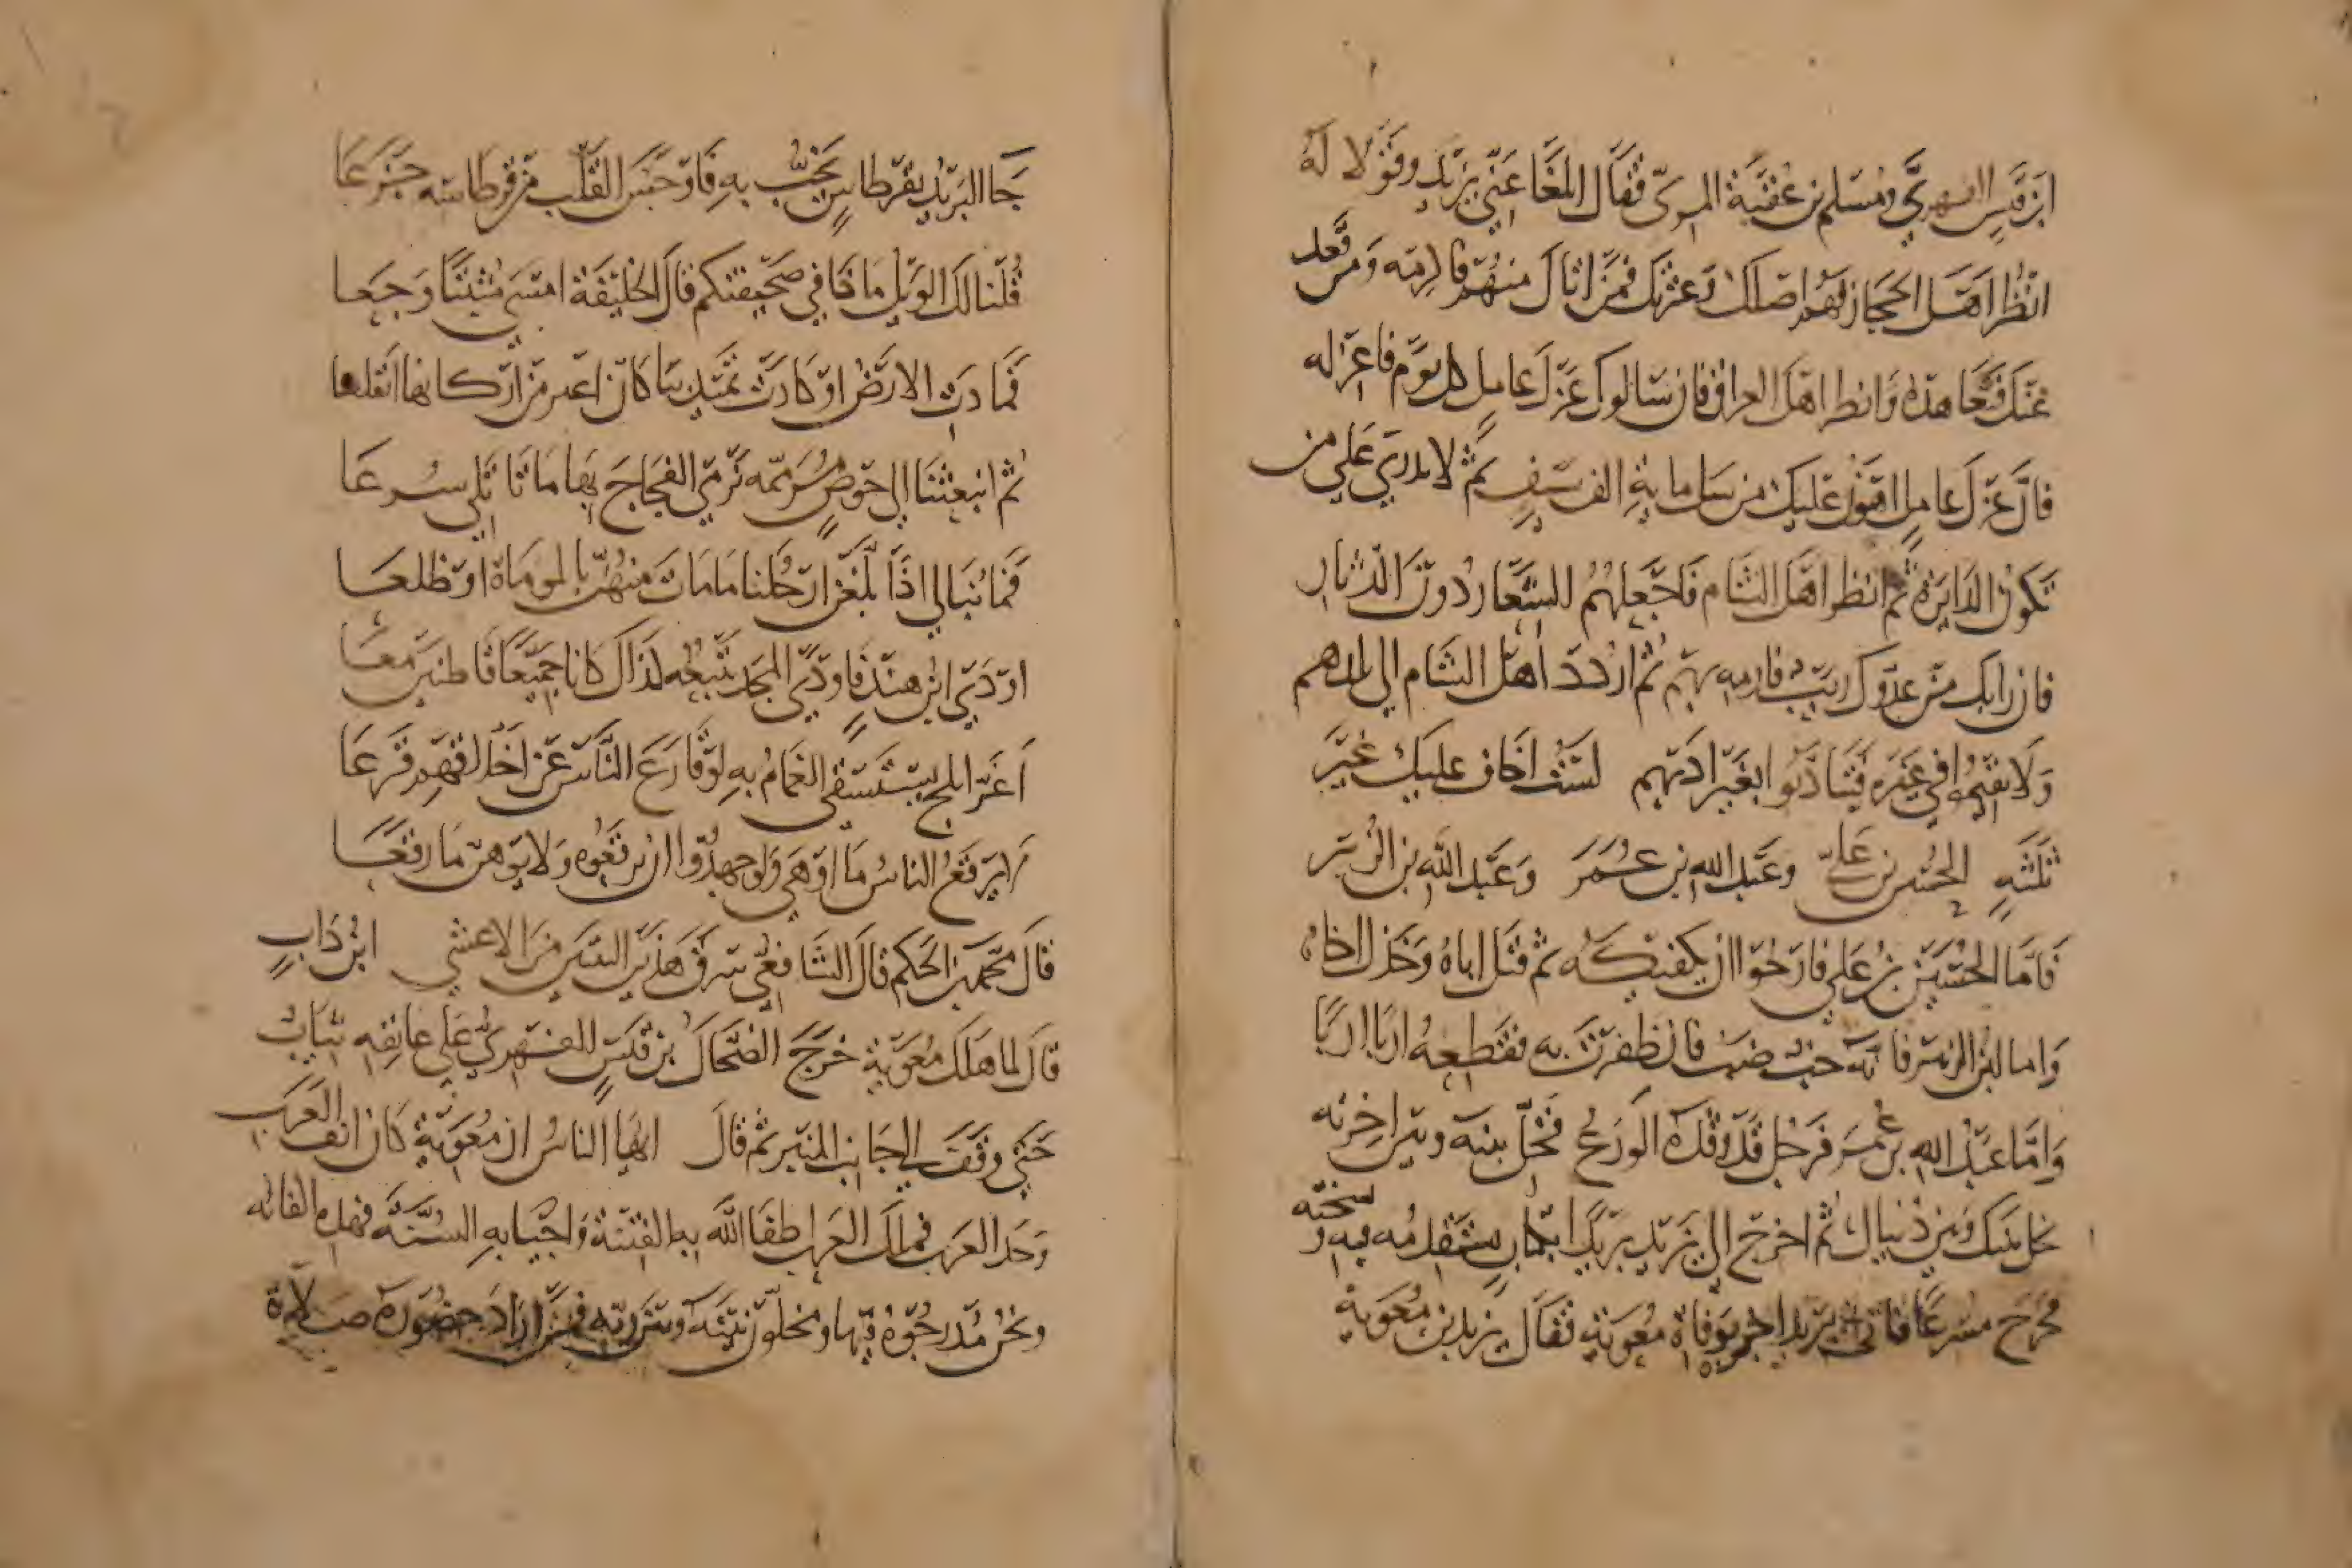 ابن قيس الفهري ومسلم بن عقبة المري فقال ابلغا عني يزيد وقولا له
انظر اهل الحجاز فهم اصلك وعترتك فمن اتاك منهم فاكرمه ومن قعد
عنك فتعاهده وانظر اهل العراق فان سالوك عزل عامل كل يوم فاعزله
فان عزل عامل اهون عليك من سل ماية الف سيف ثم لا يدري على من
تكون الدايرة ثم انظر اهل الشام فاجعلهم الشعار دون الدثار
فان رابك من عدوك ريب فارمه بهم ثم اردد اهل الشام الى بلدهم
ولا يقيموا في غيره فيتادبوا بغير ادبهم لست اخاف عليك غير
ثلثة الحسين بن علي وعبد الله بن عمر وعبد الله بن الزبير
فاما الحسين بن علي فارجوا ان يكفيكه ثم قتل اباه وخذل اخاه
واما ابن الزبير فانه خب ضب فان ظفرت به فقطعه اربا اربا
واما عبد الله بن عمر فرجل قد وقذه الورع فخل بينه وبين اخرته
يخل بينك وبين دنياك ثم اخرج الى يزيد بريدا بكتاب يستقدمه فيه و يستحثه
فخرج مسرعا فاتى يزيد اخبر بوفاة معوية فقال يزيد بن معوية
جا البريد بقرطاس يخب به فاوجس القلب من قرطاسه جزعا
قلنا لك الويل ماذا في صحيفتكم قال الخليفة امسى مثبتا وجعا
فمادت الارض او كادت تميد بنا كان اغبر من اركانها انقلعا
ثم انبعثنا الى خوص مزممه نرمي الفجاج بها ما ناتلي سرعا
فما نبالي اذا بلغن ارحلنا ما مات منهن بالموماة او ظلعا
اودى ابن هند فاودى المجد يتبعه لذاك كانا جميعا قاطنين معا
اغر ابلج يستسقى الغمام به لو قارع الناس عن احلامهم قرعا
لا يرفع الناس ما اوهى ولو جهدوا ان يرفعوه ولا يوهون ما رفعا
قال محمد بن الحكم قال الشافعي سرق هذين البيتين من الاعشي ابن داب
قال لما هلك معوية خرج الضحاك بن قيس الفهري على عاتقه ثياب
حتى وقف الى جانب المنبر ثم قال ايها الناس ان معوية كان الف العرب
وحد العرب فملك العرب اطفا الله به الفتنة واحيا به السنة فهذه اكفانه
ونحن مدرجوه فيها ومخلون بينه وبين ربه فمن اراد حضوره صلاة